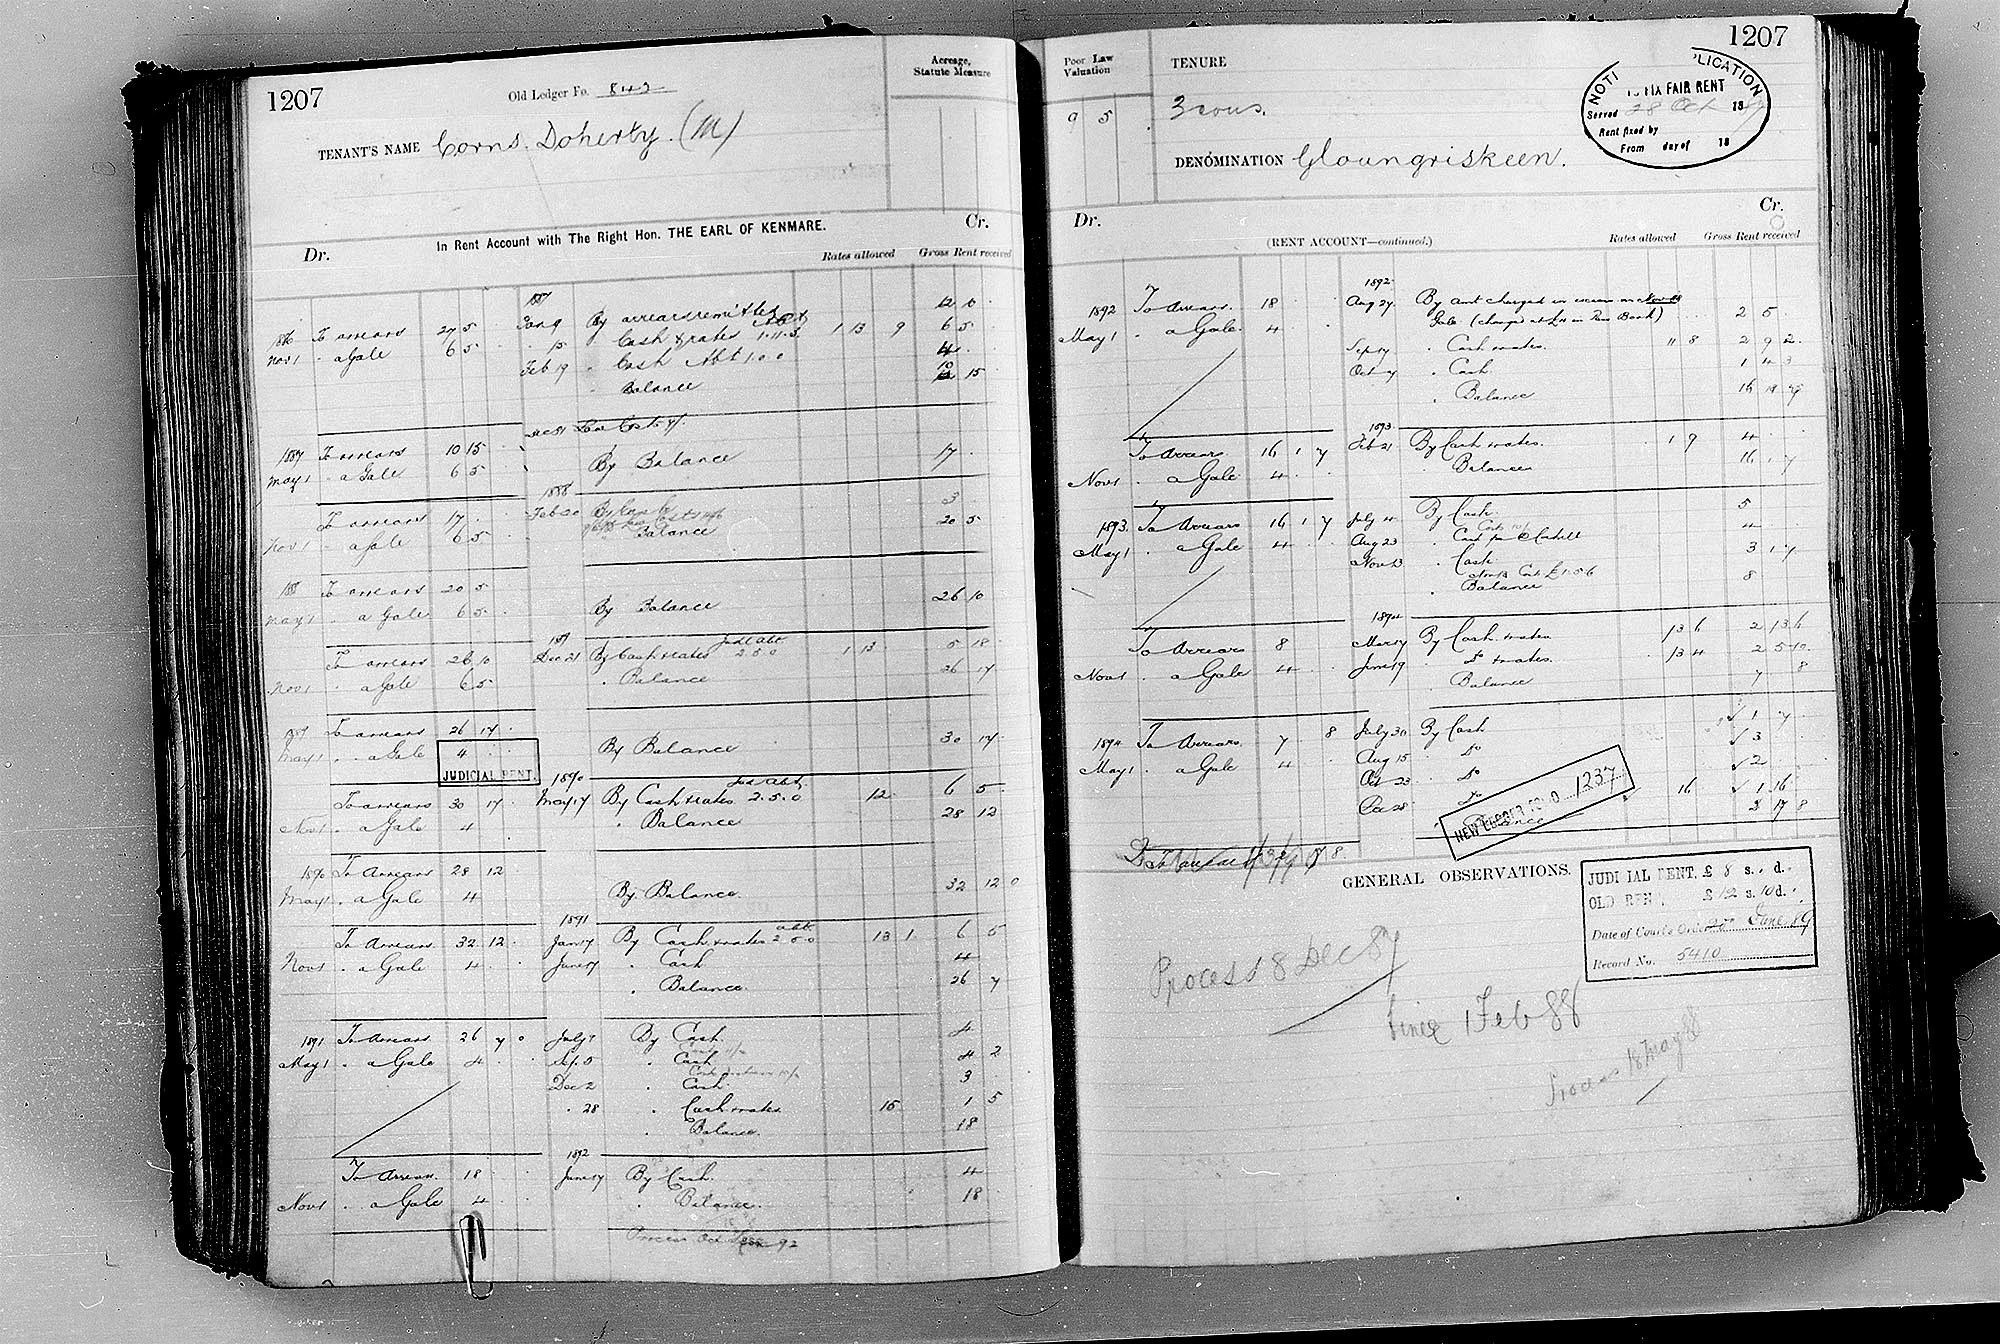 1207
Old Ledger Fo. 842
Acreage,
Statute Measure
TENANT'S NAME Corns. Doherty (M)
In Rent Account with The Right Hon. THE EARL OF KENMARE.
Dr.
Cr.
Rates allowed Gross Rent received
1887
1886 To arrears 27 5 Jan 9 By arrears remitted 12 0
Nov 1 " a Gale 6 5 " 15 Cash & rates 1.11.3 1 13 9 6 5
Feb 19 " Cash Abt 1.0.0 4
Balance 10 15
Dec 31 Law Costs
1887 To arrears 10 15
May 1 " a Gale 6 5 By Balance 17
1888
To arrears 17 Feb 20 3
Nov 1 " a Gale 6 5 Balance 20 5
1888 To arrears 20 5
May 1 " a Gale 6 5 By Balance 26 10
1889 Judl Abt
To arrears 26 10 Dec 21 By Cash & rates 2.5.0 1 13 5 18
Nov 1 " a Gale 6 5 " Balance 26 17
1889 To arrears 26 17
May 1 " a Gale 4 By Balance 30 17
JUDICIAL RENT.
1890 Jud Abt
To arrears 30 17 May 17 By Cash & rates 2.5.0 12 6 5
Nov 1 " a Gale 4 " Balance 28 12
1890 To Arrears 28 12
May 1 " a Gale 4 By Balance 32 12 0
1891 abt
To Arrears 32 12 Jan 17 By Cash & rates 2 5 0 13 1 6 5
Nov 1 " a Gale 4 June 17 " Cash 4
" Balance 26 7
1891 To Arrears 26 7 0 July 7 By Cash 4
May 1 " a Gale 4 Sep. 5 " Cash 4 2
Dec 2 " Cash 3
" 28 " Cash & rates 15 1 5
" Balance 18
1892
To Arrears 18 June 17 By Cash 4
Nov 1 " a Gale 4 " Balance 18
Process Oct 92
1207
Poor Law
Valuation
9 5
TENURE
3 sons.
DENOMINATION Gloungriskeen.
NOTI PLICATION
TO FIX FAIR RENT
Served 28 Oct 18
Rent fixed by
From day of 18
Dr.
Cr.
(RENT ACCOUNT—continued.)
Rates allowed Gross Rent received
1892
1892 To Arrears 18 Aug 27 By amt charged in excess in Nov 88
May 1 " a Gale 4 Gale (charged at £4 in Rent Book) 2 5
Sep 17 " Cash & rates 11 8 2 9 2
Oct 27 " Cash 1 4 3
" Balance 16 1 7
1893
To Arrears 16 1 7 Feb 21 By Cash & rates 1 9 4
Nov 1 " a Gale 4 Balance 16 1 7
1893 To Arrears 16 1 7 July 4 By Cash 5
May 1 " a Gale 4 Aug 23 " 4
Nov 13 " Cash 3 1 7
" Balance 8
1894
To Arrears 8 Mar 17 By Cash & rates 13 6 2 13 6
Nov 1 " a Gale 4 June 19 " Do & rates 13 4 2 5 10
" Balance 7 8
1894 To Arrears 7 8 July 30 By Cash 1 7
May 1 " a Gale 4 Aug 15 " Do 3
Oct 23 " Do 2
Dec 28 " Do 16 1 16
" Balance 3 17 8
NEW LEDGER FO. 1237
GENERAL OBSERVATIONS.
JUDICIAL RENT, £ 8 s. d.
OLD RENT, £ 12 s. 10 d.
Date of Court's Order June 89
Record No. 5410
Process 8 Dec 87
Since 1 Feb 88
Process 18 May 88